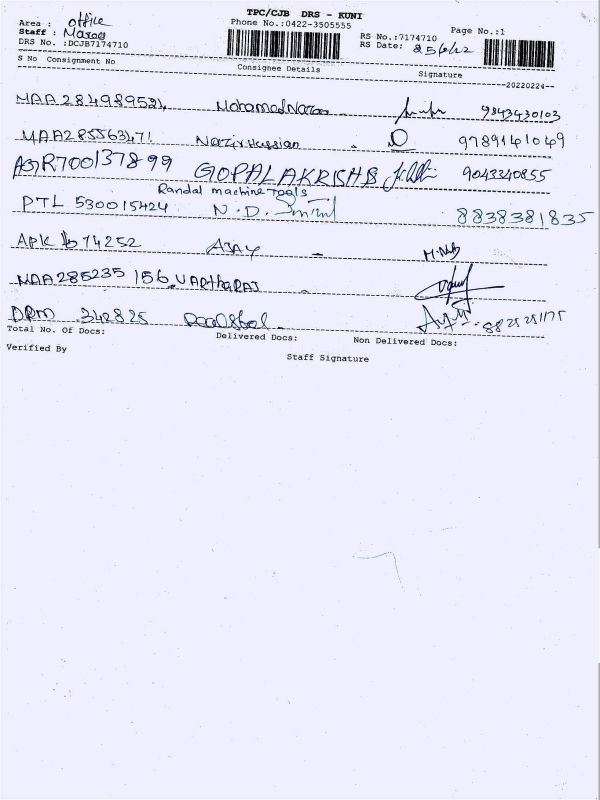 TPC/CJB DRS - KUNI
Area : office
Phone No.:0422-3505555
Page No.:1
Staff :
RS No.:7174710
DRS No. :DCJB7174710
RS Date: 25/2/22
S No Consignment No
Consignee Details
Signature
20220224--
MAA284989524
9843430103
MAA285563471 Nazir Hussian 9789141049
700137899 GOPALAKRISHB 9043340855
Randal machine Tools
PTL 530015424 N.D. 8838381835
APK 1674252 AJAY
MAA285235156 VARthARAJ
DRM 342825
Total No. Of Docs:
Delivered Docs:
Non Delivered Docs:
Verified By
Staff Signature